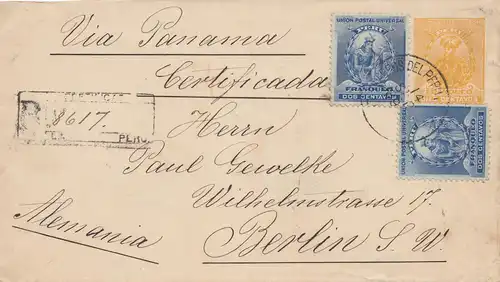 Via Panama
Certificada
UNION POSTAL UNIVERSAL
PERU
FRANQUEO
DOS CENTAVOS
DEL PERU
8617
PERU
Herrn
Paul Gewelke
Wilhelmstrasse 17.
Berlin S. W.
Alemania
UNION POSTAL UNIVERSAL
PERU
FRANQUEO
DOS CENTAVOS